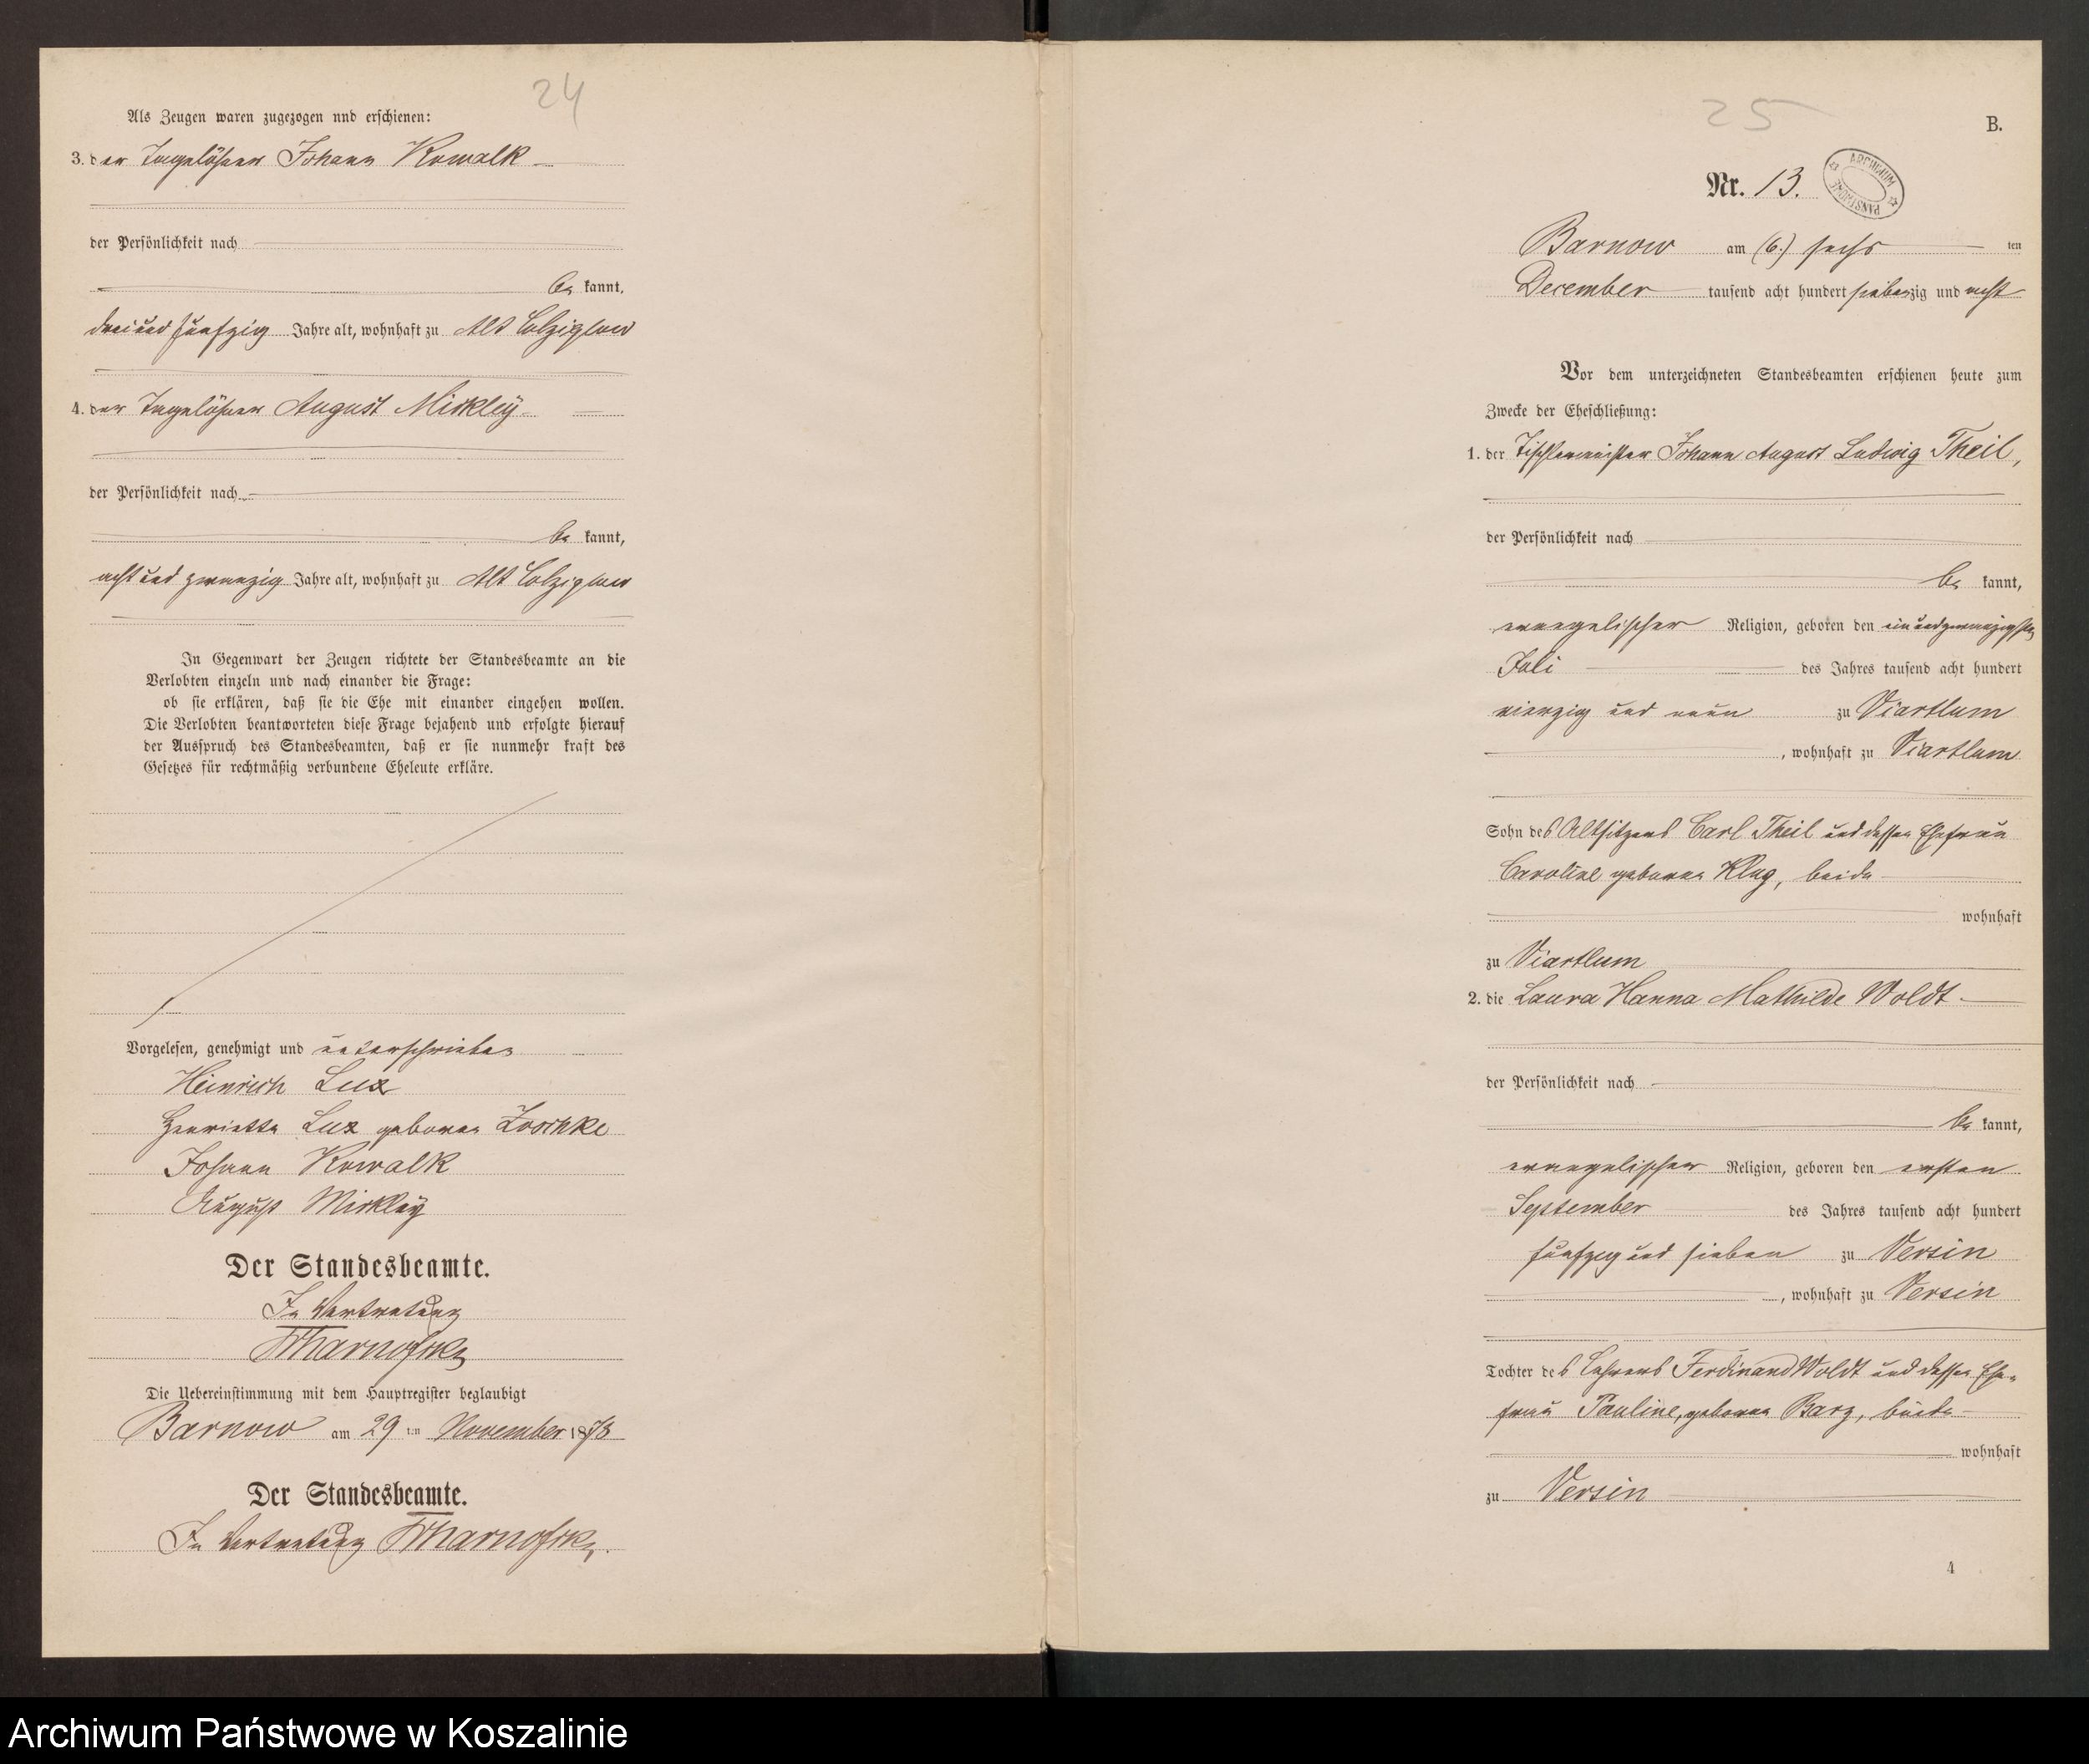 24
Als Zeugen waren zugezogen nnd erschienen:
3. der Tagelöhner Johann Kowalk
der Persönlichkeit nach
be kannt,
drei und fünfzig Jahre alt, wohnhaft zu Alt Colziglow
4. der Tagelöhner August Mirkley
der Persönlichkeit nach
be kannt,
acht und zwanzig Jahre alt, wohnhaft zu Alt Colziglow
In Gegenwart der Zeugen richtete der Standesbeamte an die
Verlobten einzeln und nach einander die Frage:
ob sie erklären, daß sie die Ehe mit einander eingehen wollen.
Die Verlobten beantworteten diese Frage bejahend und erfolgte hierauf
der Ausspruch des Standesbeamten, daß er sie nunmehr kraft des
Gesetzes für rechtmäßig verbundene Eheleute erkläre.
Vorgelesen, genehmigt und unterschrieben
Heinrich Lux
Henriette Lux geborene Zoschke
Johann Kowalk
August Mirkley
Der Standesbeamte.
In Vertretung
Die Uebereinstimmung mit dem Hauptregister beglaubigt
Barnow am 29 ten November 1878
Der Standesbeamte.
In Vertretung
25
B.
Nr. 13.
ARCHIWUM PAŃSTWOWE
Barnow am (6.) sechs ten
December tausend acht hundert siebenzig und acht
Vor dem unterzeichneten Standesbeamten erschienen heute zum
Zwecke der Eheschließung:
1. der Tischlermeister Johann August Ludwig Theil,
der Persönlichkeit nach
be kannt,
evangelischer Religion, geboren den ein und zwanzigsten
Juli des Jahres tausend acht hundert
vierzig und neun zu Viartlum
, wohnhaft zu Viartlum
Sohn des Altsitzers Carl Theil und dessen Ehefrau
Caroline geborene Klug, beide
wohnhaft
zu Viartlum
2. die Laura Hanna Mathilde Woldt
der Persönlichkeit nach
be kannt,
evangelischer Religion, geboren den ersten
September des Jahres tausend acht hundert
fünfzig und sieben zu Versin
, wohnhaft zu Versin
Tochter des Lehrers Ferdinand Woldt und dessen Ehe-
frau Pauline, geborene Barz, beide
wohnhaft
zu Versin
4
Archiwum Państwowe w Koszalinie